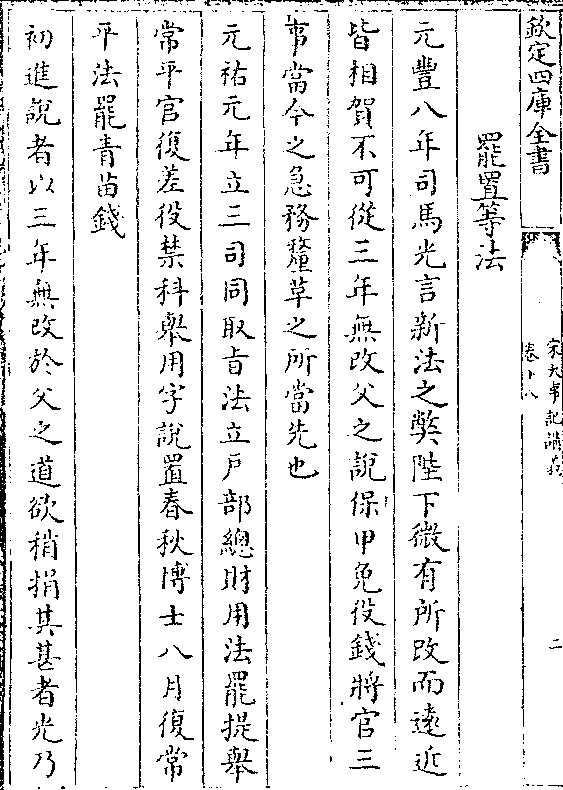 欽定四庫全書
宋大事記講義
卷十八
二
罷置等法
元豐八年司馬光言新法之弊陛下微有所改而遠近
皆相賀不可從三年無改父之說保甲免役錢將官三
事當今之急務釐革之所當先也
元祐元年立三司同取旨法立戶部總財用法罷提舉
常平官復差役禁科舉用字說置春秋博士八月復常
平法罷青苗錢
初進說者以三年無改於父之道欲稍損其甚者光乃